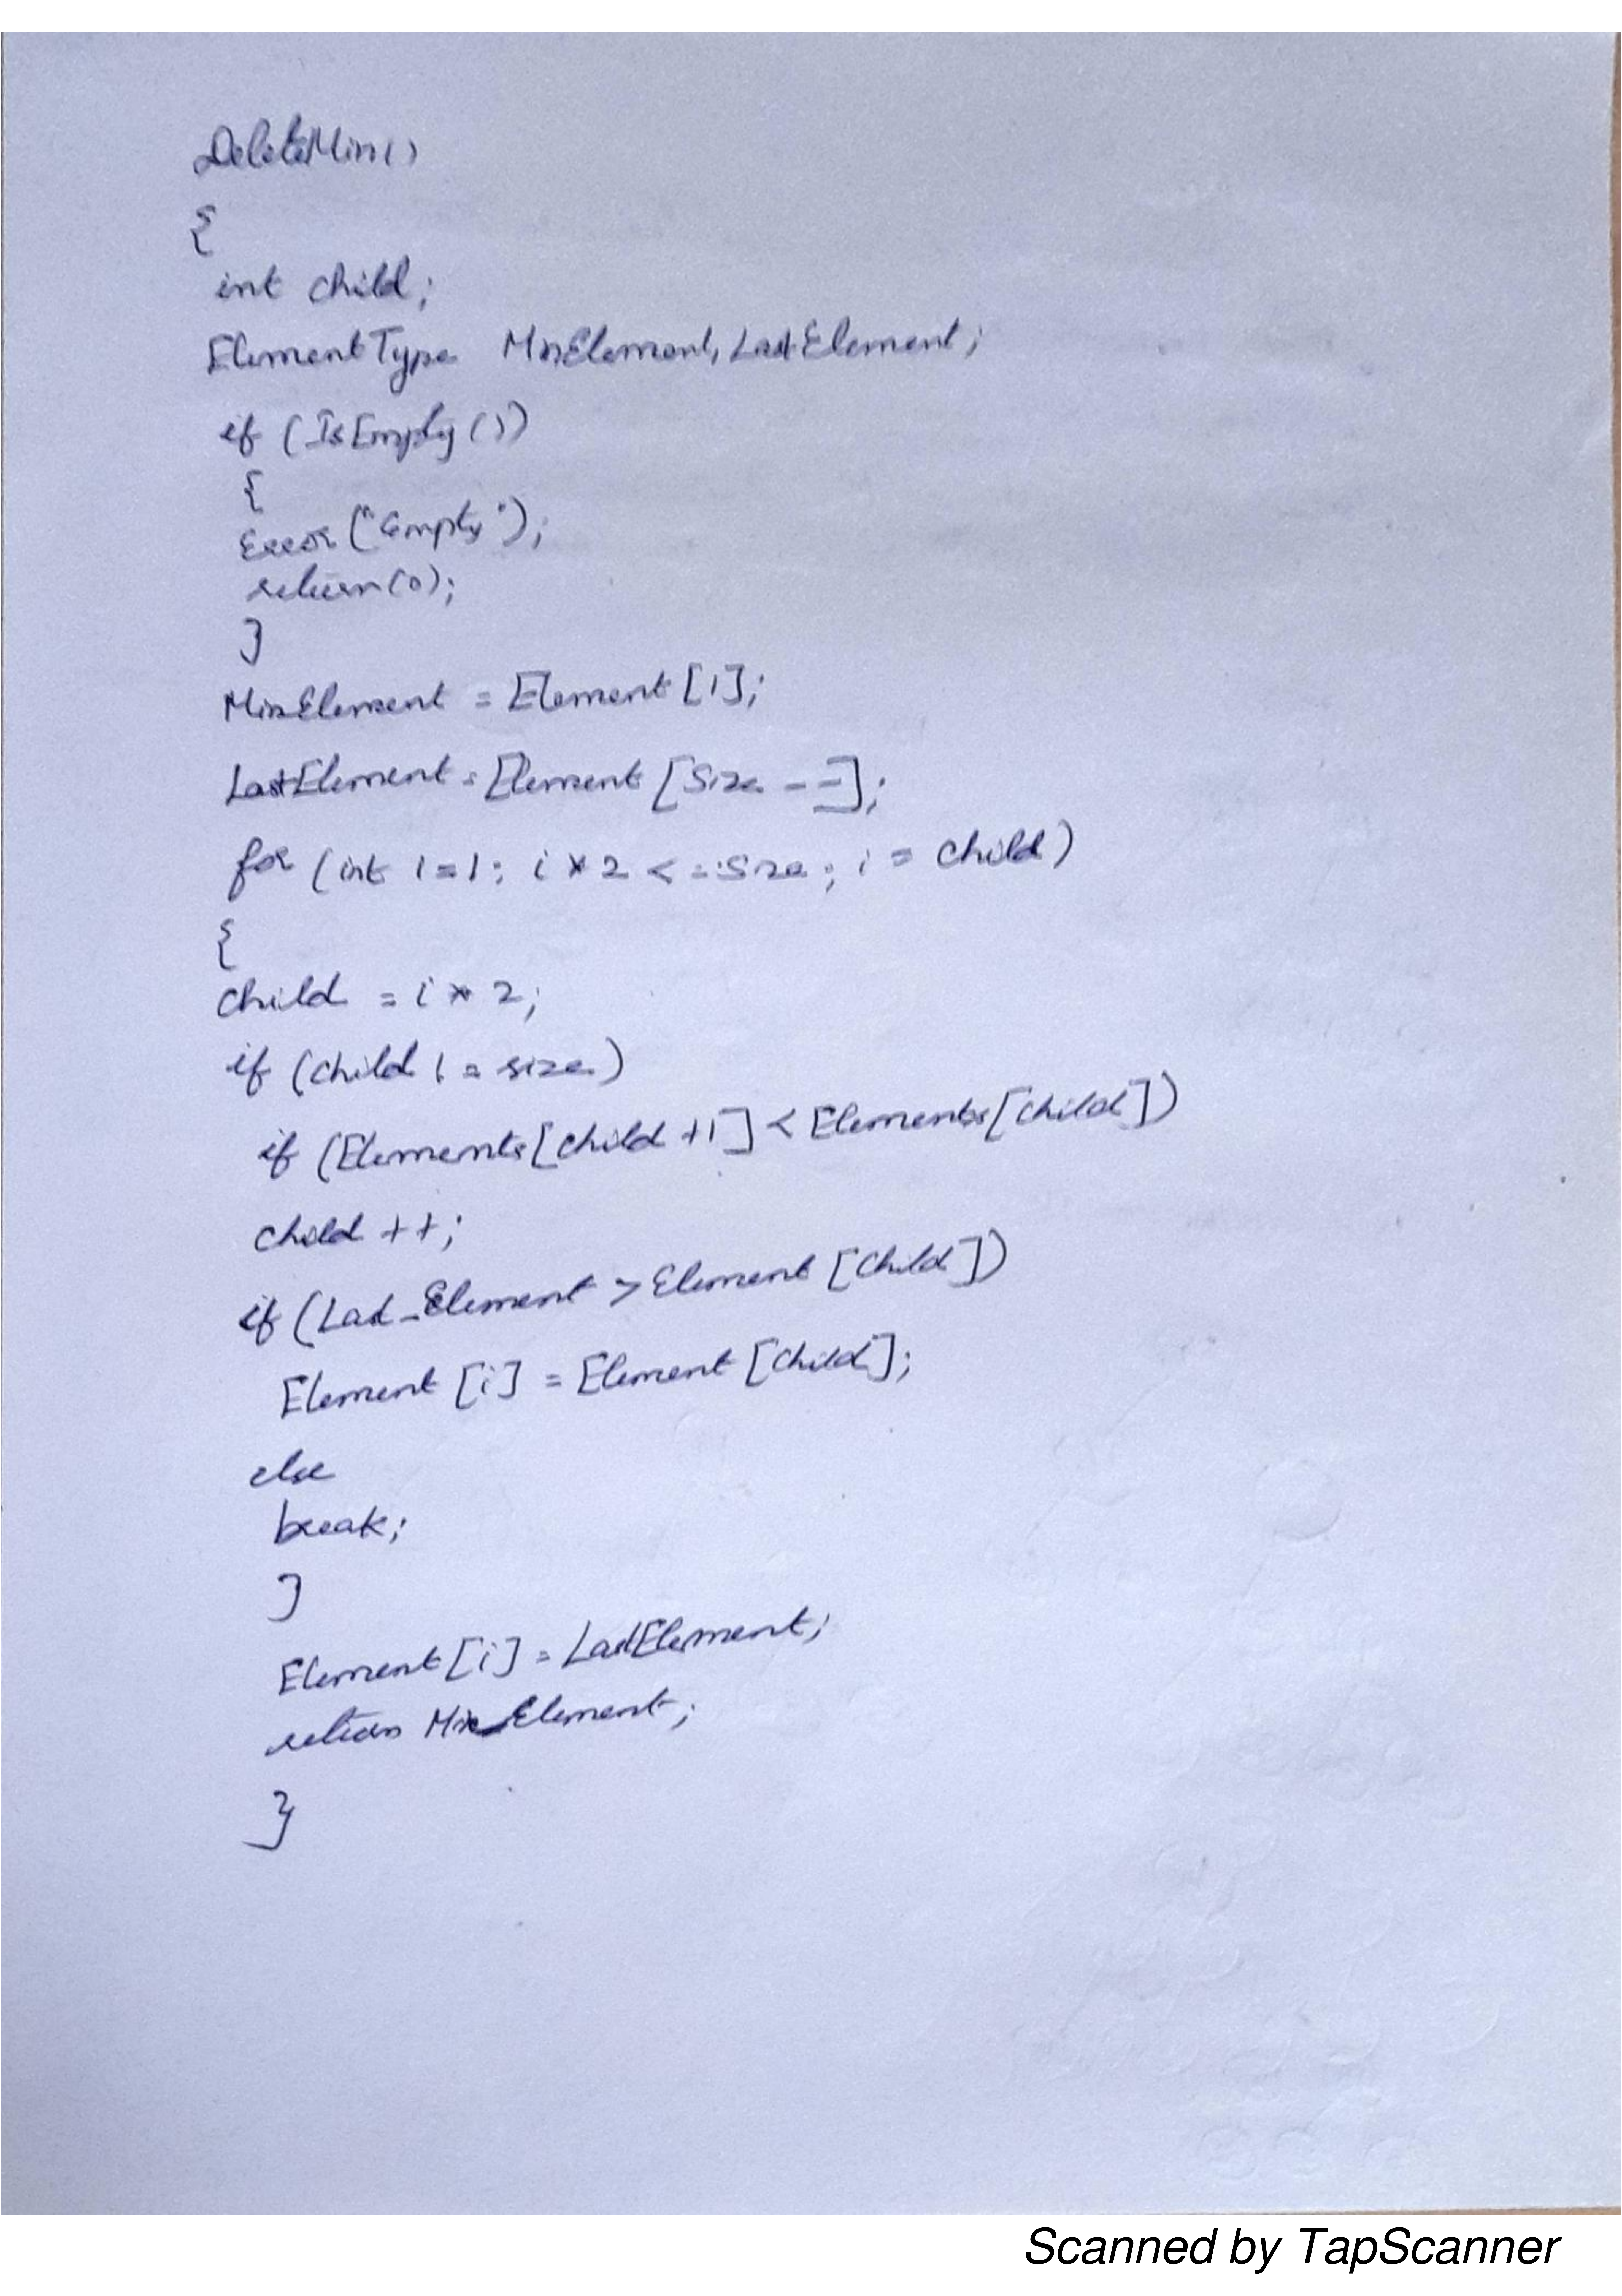 DeleteMin()
{
int child;
ElementType MinElement, LastElement;
if (IsEmpty())
{
Error("Empty");
return(0);
}
MinElement = Element [1];
LastElement = Element [Size --];
for (int i=1; i * 2 <= Size; i = child)
{
child = i * 2;
if (child != size)
if (Elements[child +1] < Elements[child])
child ++;
if (Last_Element > Element [child])
Element [i] = Element [child];
else
break;
}
Element [i] = LastElement;
return MinElement;
}
Scanned by TapScanner